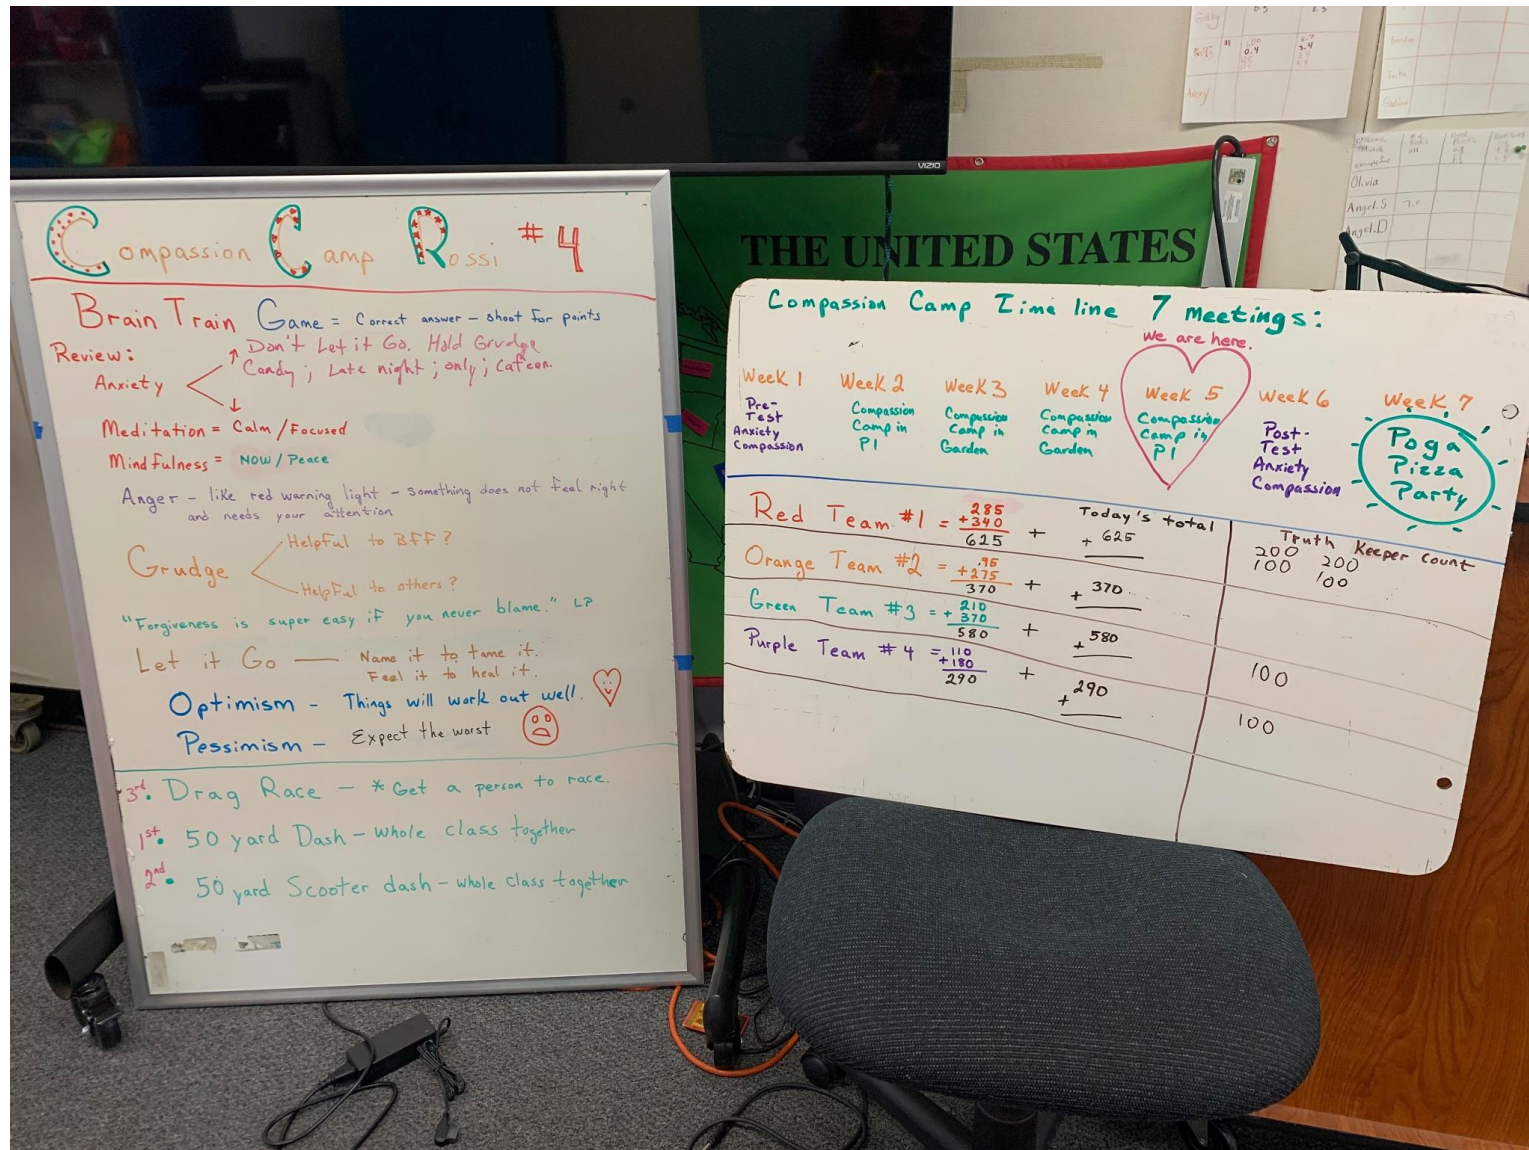 VIZIO
THE UNITED STATES
Compassion Camp Rossi #4
Brain Train Game = Correct answer - shoot for points
Review:
Don't Let it Go. Hold Grudge
Candy; Late night; only; Cafeen.
Anxiety
Meditation = Calm / Focused
Mindfulness = Now / Peace
Anger - like red warning light - something does not feel right
and needs your attention
Grudge
Helpful to BFF?
Helpful to others?
"Forgiveness is super easy if you never blame." LP
Let it Go — Name it to tame it.
Feel it to heal it.
Optimism - Things will work out well.
Pessimism - Expect the worst
3rd • Drag Race - * Get a person to race.
1st • 50 yard Dash - whole class together
2nd • 50 yard Scooter dash - whole class together
Compassion Camp Time line 7 meetings:
We are here.
Week 1
Pre-
Test
Anxiety
Compassion
Week 2
Compassion
Camp in
P1
Week 3
Compassion
Camp in
Garden
Week 4
Compassion
Camp in
Garden
Week 5
Compassion
Camp in
P1
Week 6
Post-
Test
Anxiety
Compassion
Week 7
Poga
Pizza
Party
Today's total
Truth Keeper count
Red Team #1 = 285
+340
625
+
+ 625
200 200
100 100
Orange Team #2 = .95
+275
370
+
+ 370
Green Team #3 = 210
+ 370
580
+
+ 580
100
Purple Team #4 = 110
+180
290
+
+ 290
100
Avery
Olivia
Angel.S
Angel.D